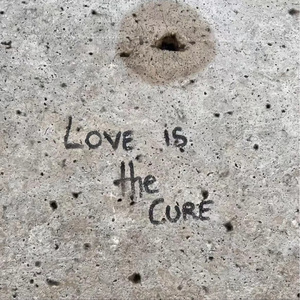 LOVE is
the
CURE